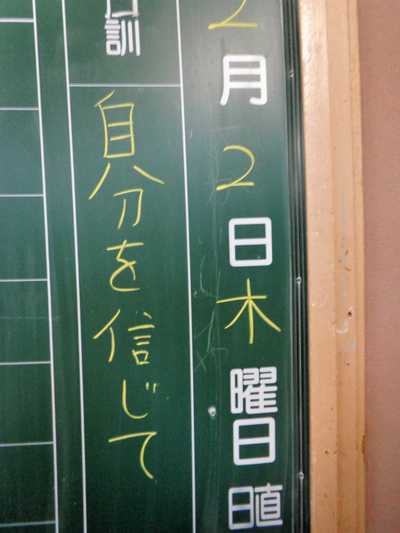 2月2日木曜日直
訓
自分を信じて